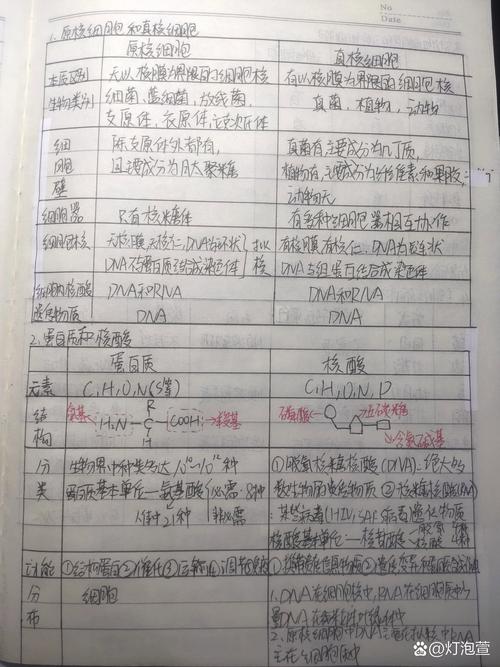 No
Date
1. 原核细胞和真核细胞
原核细胞 真核细胞
本质区别 无以核膜为界限的细胞核 有以核膜为界限的细胞核
生物类别 细菌、蓝细菌、放线菌、 真菌、植物、动物
支原体、衣原体、立克次体
细胞壁 除支原体外都有, 真菌有,主要成分为几丁质,
且主要成分为肽聚糖 植物有,主要成分为纤维素和果胶;
动物无
细胞器 只有核糖体 有多种细胞器相互协作
细胞核 无核膜、无核仁,DNA为环状 拟 有核膜有核仁,DNA为链状
DNA不与蛋白质结合成染色体 核 DNA与组蛋白结合成染色体
细胞内核酸 DNA和RNA DNA和RNA
遗传物质 DNA DNA
2. 蛋白质和核酸
蛋白质 核酸
元素 C,H,O,N(S等) C,H,O,N,P
结构 氨基 H₂N-C-COOH 羧基 磷酸 五碳糖
R
H 含氮碱基
分类 生物界中种类多达10¹⁰~10¹²种 ①脱氧核糖核酸(DNA):绝大多
蛋白质基本单位—氨基酸 必需:8种 数生物的遗传物质 ②核糖核酸(RNA)
人体中21种 非必需 :某些病毒(HIV,SARS病毒)遗传物质
核酸基本单位—核苷酸 脱氧 4种
核糖 4种
功能 ①结构蛋白②催化③运输④调节⑤免疫 ①携带遗传信息的物质②遗传变异和蛋白质合成
分布 细胞 1. DNA在细胞核中,RNA在细胞质中
DNA在线粒体叶绿体中
2. 原核细胞中DNA主要在拟核中RNA
主要在细胞质中
@灯泡萱